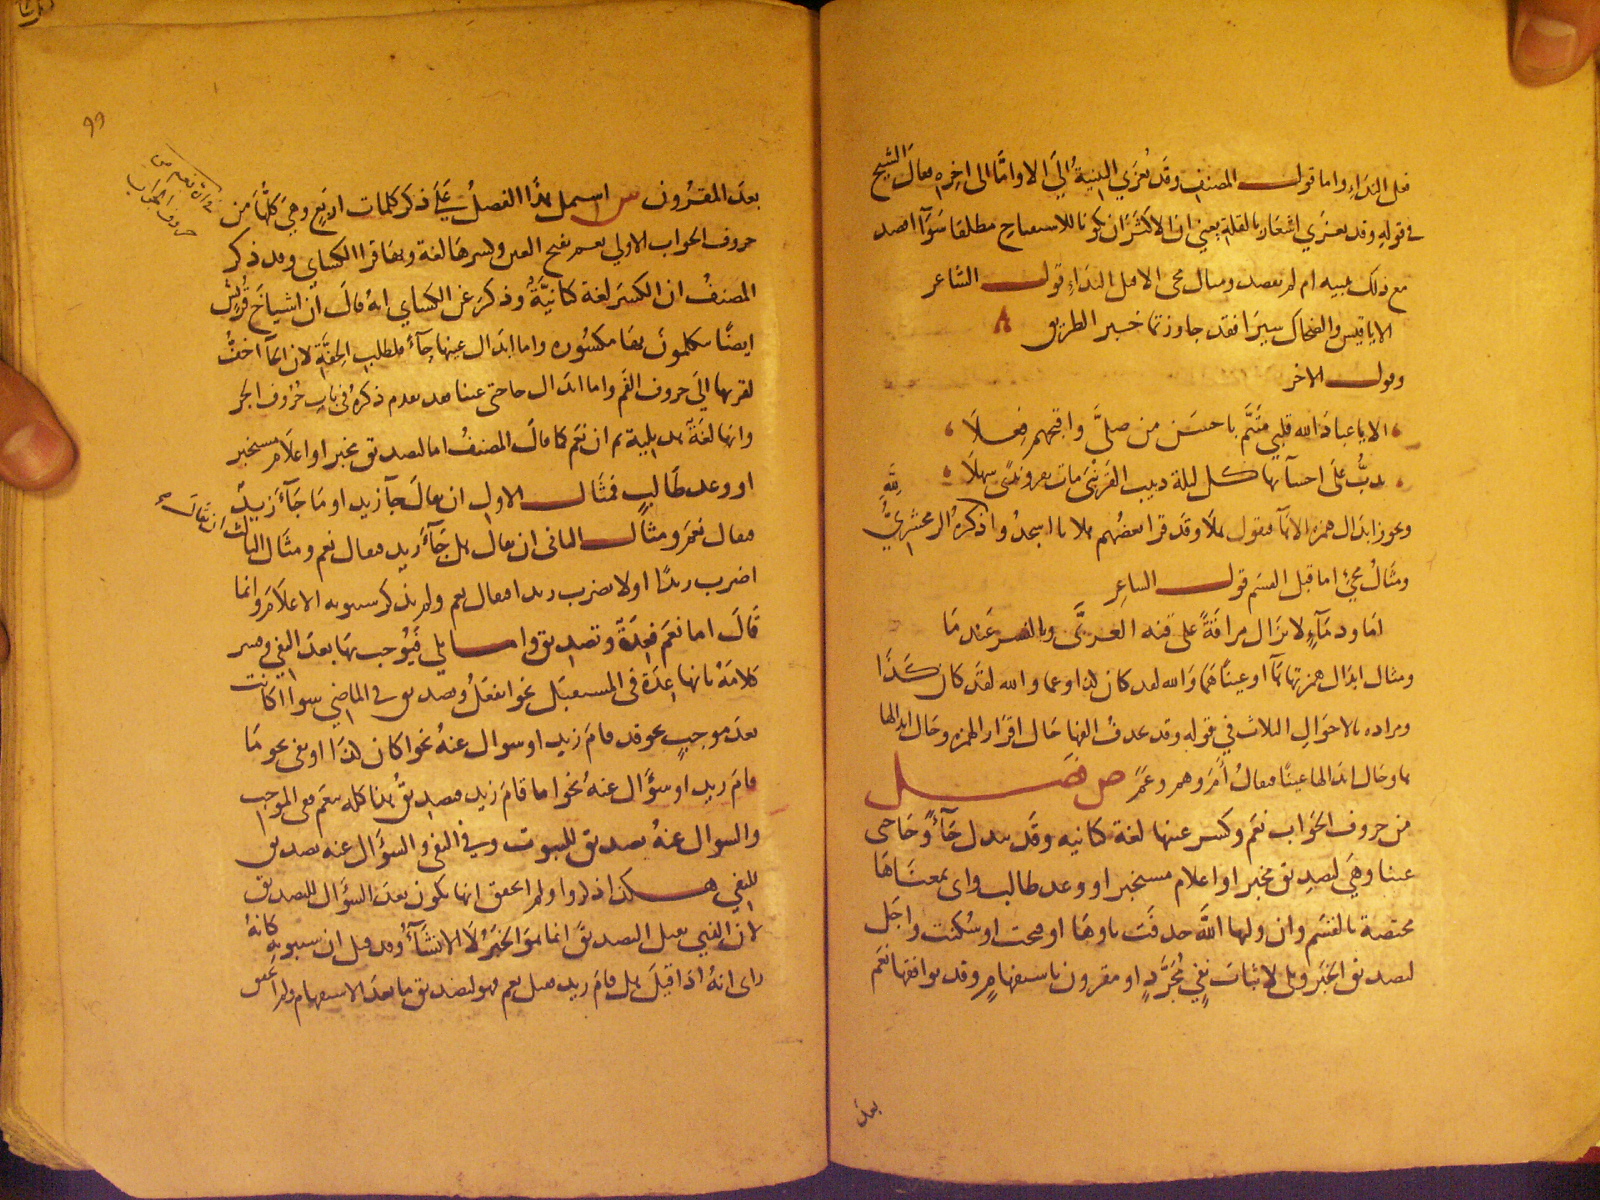 قبل النداء واما قول المصنف وقد تعزي البنية الي الا واما الى اخره فقال الشيخ
في قوله وقد تعزي اشعار بالقلة يعني ان الاكثر ان يكونا للاستفتاح مطلقا سوآا قصد
مع ذلك تنبيه ام لم يقصد ومثال مجى الا قبل النداء قول الشاعر
الا يا قيس والضحاك سيرا فقد جاوزتما خمر الطريق
وقول الاخر
الا يا عباد الله قلبي متيم باحسن من صلى واقبحهم فعلا
يدب على احشآئها كل ليلة دبيب القرنبى بات يعرو نقى سهلا
ويجوز ابدال همزة الا هآ فيقول هلا وقد قرا بعضهم هلا يا اسجدوا ذكره الزمخشري
ومثال مجئ اما قبل القسم قول الشاعر
اما ودمآء لا تزال مراقة على قنه العزى وبالنسر عندما
ومثال ابدال همزتها هآ او عينا هما والله لقد كان كذا وعما والله لقد كان كذا
ومراده بالاحوال الثلاث في قوله وقد تحذف الفها حال اقرار الهمزه وحال ابدالها
هآ وحال ابدالها عينا فيقال أم وهم وعم ص فصل
من حروف الجواب نعم وكسر عينها لغة كنانيه وقد تبدل حآء وحا حتى
عينا وهي لتصديق مخبر او اعلام مستخبر او وعد طالب واى بمعناها
مختصة بالقسم وان وليها الله حذفت ياوها او فتحت او سكنت واجل
لتصديق الخبر وبلى لاثبات نفي مجرد او مقرون باستفهام وقد توافقها نعم
بعد
٩٩
بعد المقرون س اشتمل هذا الفصل على ذكر كلمات اربع وهي كلها من
حروف الجواب الاولي نعم بفتح العين وكسرها لغة وبها قرا الكساي وقد ذكر
المصنف ان الكسر لغة كنانية وذكر عن الكساي انه قال ان اشياخ قريش
ايضا يتكلمون بها مكسوره واما ابدال عينها حآء فلطلب الخفة لان الحآ اخف
لقربها الي حروف الفم واما ابدال حا حتى عينا فقد تقدم ذكره في باب حروف الجر
وانها لغة هذيلية ثم ان نعم كما قال المصنف اما لتصديق مخبر او اعلام مستخبر
او وعد طالب فمثال الاول ان يقال جآ زيد او ما جآء زيد
فيقال نعم ومثال الثانى ان يقال هل جآء زيد فيقال نعم ومثال الثالث ان يقال
اضرب زيدا او لا تضرب زيدا فيقال نعم ولم يذكر سيبويه الاعلام وانما
قال اما نعم فعدة وتصديق واما بلي فيوجب بها بعد النفي وفسر
كلامه بانها عدة في المستقبل نحو افعل وتصديق في الماضي سوا اكانت
بعد موجب نحو قد قام زيد او سوال عنه نحو اكان كذا او نفى نحو ما
قام زيد او سؤال عنه نحو اما قام زيد فتصديق هذا كله بنعم ففى الموجب
والسوال عنه تصديق للثبوت وفي النفي والسؤال عنه تصديق
للنفي هكذا ذكروا ولم اتحقق انها تكون بعد السؤال للتصديق
لان الذي يقبل التصديق انما هو الخبر لا الانشآء وقد قيل ان سيبويه كانه
راى انه اذا قيل هل قام زيد فقيل نعم فهو لتصديق ما بعد الاستفهام ولم